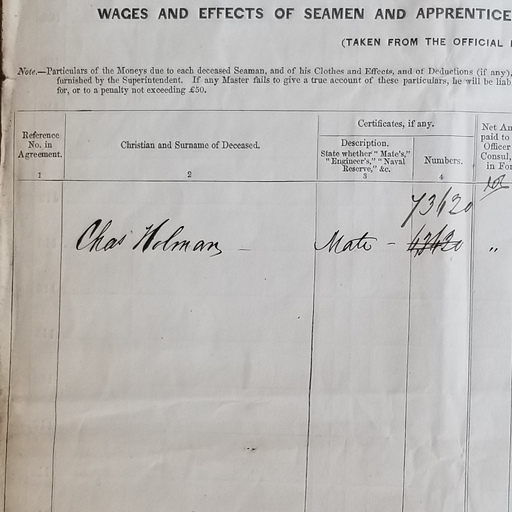 WAGES AND EFFECTS OF SEAMEN AND APPRENTICE
(TAKEN FROM THE OFFICIAL
Note.—Particulars of the Moneys due to each deceased Seaman, and of his Clothes and Effects, and of Deductions (if any),
furnished by the Superintendent. If any Master fails to give a true account of these particulars, he will be liab
for, or to a penalty not exceeding £50.
Reference No. in Agreement.
Christian and Surname of Deceased.
Certificates, if any.
Description. State whether "Mate's," "Engineer's," "Naval Reserve," &c.
Numbers.
Net An
paid to
Officer
Consul,
in For
1
2
3
4
73620
Chas Holman — Mate - „